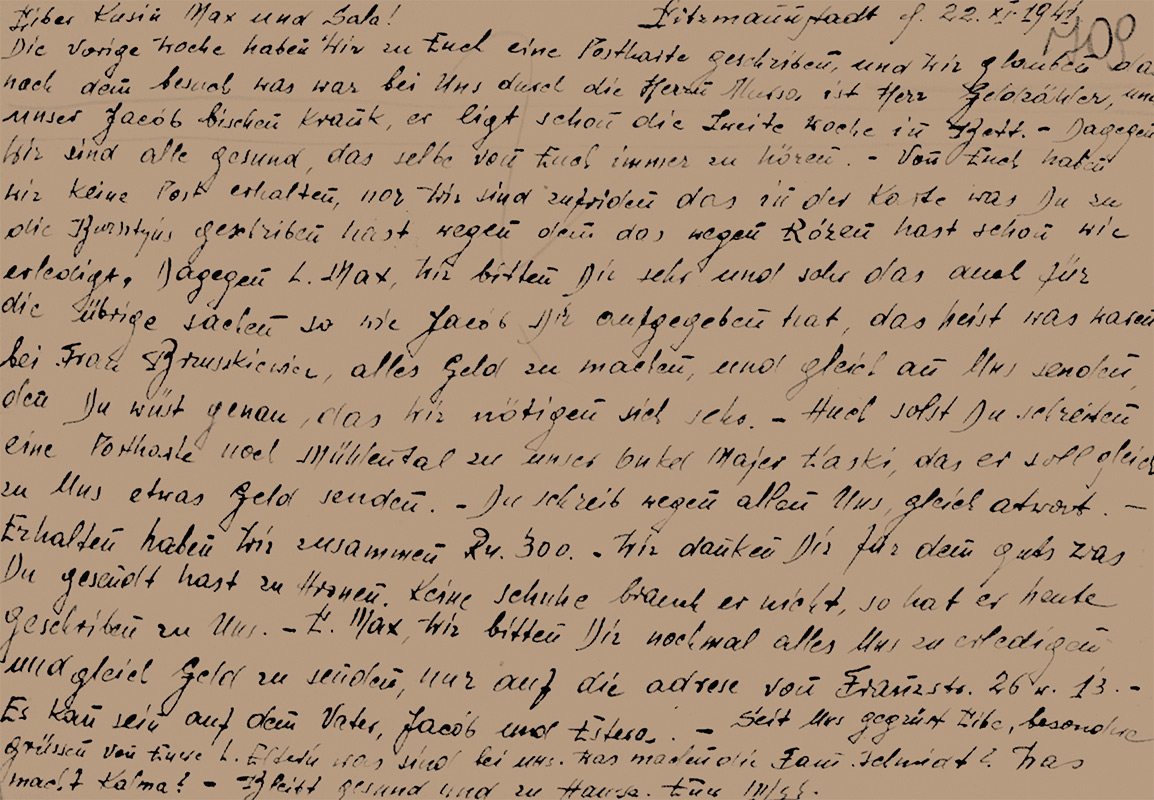 Liber Kusin Max und Sala! Litzmannstadt d. 22. XI 1941
709
Die vorige Woche haben Wir zu Euch eine Postkarte geschriben, und Wir glauben das
nach dem besuch was war bei Uns durch die Herrn ist Herr Geldzähler, und
unser Jacob bischen Krank, er ligt schon die Zweite Woche in Bett. - Dagegen
Wir sind alle gesund, das selbe von Euch immer zu hören. - Von Euch haben
wir keine Post erhalten, nor Wir sind zufriden das in der Karte was Du zu
die Bursztyns geschriben hast wegen dem das wegen Rózen hast schon wie
erledigt. Dagegen L. Max, Wir bitten Dir sehr und sehr das auch für
die übrige sachen so wie Jacob Dir aufgegeben hat, das heist was waren
bei Frau alles Geld zu machen, und gleich an Uns senden,
den Du wüst genau, das Wir nötigen sich sehr. - Auch solst Du schreiben
eine Postkarte noch Mühlental zu unser Onkel Majer Laski, das er soll gleich
zu Uns etwas Geld senden. - Du schreib wegen allen Uns, gleich atwort. -
Erhalten haben Wir zusammen Rm. 300. - Wir danken Dir für dem guts was
Du gesendt hast zu Aronen. Keine schuhe brauch er nicht, so hat er heute
geschriben zu Uns. - L. Max, Wir bitten Dir nochmal alles Uns zu erledigen
und gleich Geld zu senden, nur auf die adrese von Franzstr. 26 w. 13. -
Es kan sein auf dem Vater, Jacob und Estera. - Seit Uns gegrüst Libe, besondre
grüssen von Eure L. Eltern was sind bei uns. Was machen die Fam. Schmidt? Was
macht Kalma? - Bleibt gesund und zu Hause. Eure